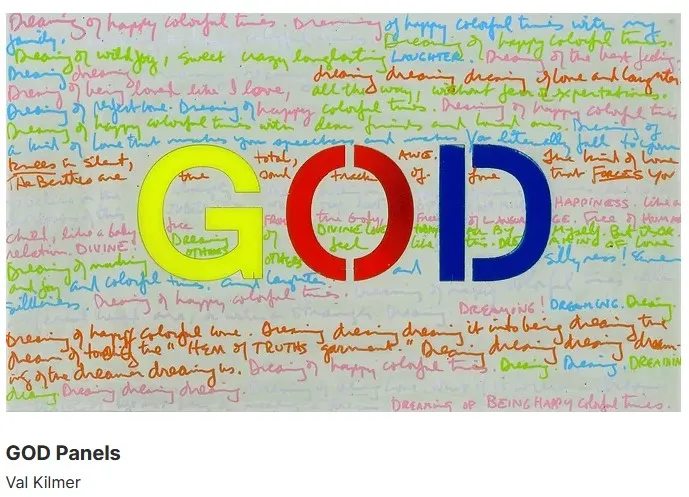 Dreaming of happy colorful times. Dreaming of happy colorful times with my
family. Dreaming of happy colorful times.
Dreaming of wild joy, sweet crazy longlasting LAUGHTER. Dreaming of the best feeling.
Dreaming dreaming dreaming dreaming dreaming of love and laughter.
Dreaming of being loved like I love, all the way, without fear or expectations.
Dreaming of perfect love. Dreaming of happy colorful times. Dreaming of happy colorful times
Dreaming of happy colorful times with dear friends and loved ones. Dreaming of
a kind of love that makes you speechless and makes you literally fall to your
knees in silent, total, AWE. The kind of love
The Beatles are the sound track of love that FORCES you
HAPPINESS. Like a
child, like a baby free FROM the body, Free of LANGUAGE. Free of HUMAN
relation. DIVINE. Dreaming of DIVINE LOVE By Myself. But
OTHERS OTHERS feel like this.
Dreaming of making and silliness!
and joy and colorful times. and laughter
silliness Dreaming of happy colorful times.
GOD
DREAMING! DREAMING. Dreaming.
Dreaming of happy colorful love. Dreaming dreaming dreaming it into being dreaming the
dream of touching the "HEM of TRUTHS garment." Dreaming dreaming dreaming dream-
ing of the dreamer dreaming us. Dreaming of happy colorful times. Dreaming Dreaming. DREAMING
dreaming Dreaming dreaming dreaming.
DREAMING OF BEING HAPPY colorful times.
GOD Panels
Val Kilmer